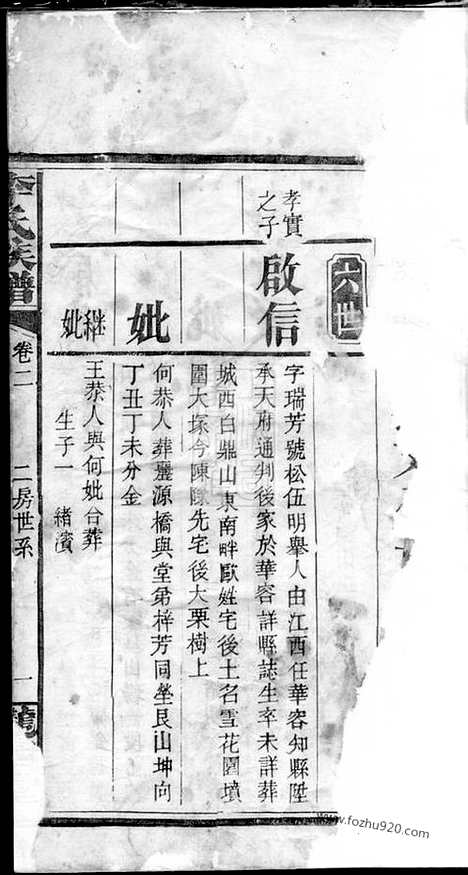 六世
孝實之子
啟信
字瑞芳號松伍明舉人由江西任華容知縣陞
承天府通判後家於華容詳縣誌生卒未詳葬
城西白鼎山東南畔歐姓宅後土名雪花園墳
圍大塚今陳隊先宅後大栗樹上
妣
何恭人葬層源橋與堂弟梓芳同塋艮山坤向
丁丑丁未分金
繼妣
王恭人與何妣合葬
生子一 緒濱
氏族譜
卷二
二房世系
一
www.fozhu920.com